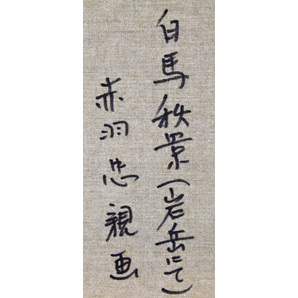 白馬秋景(岩岳にて)
赤羽忠親画